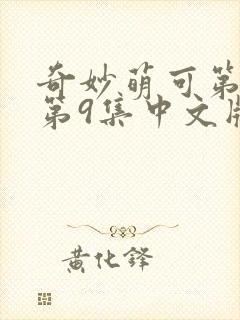 奇妙萌可第
第9集中文版
黄化锋